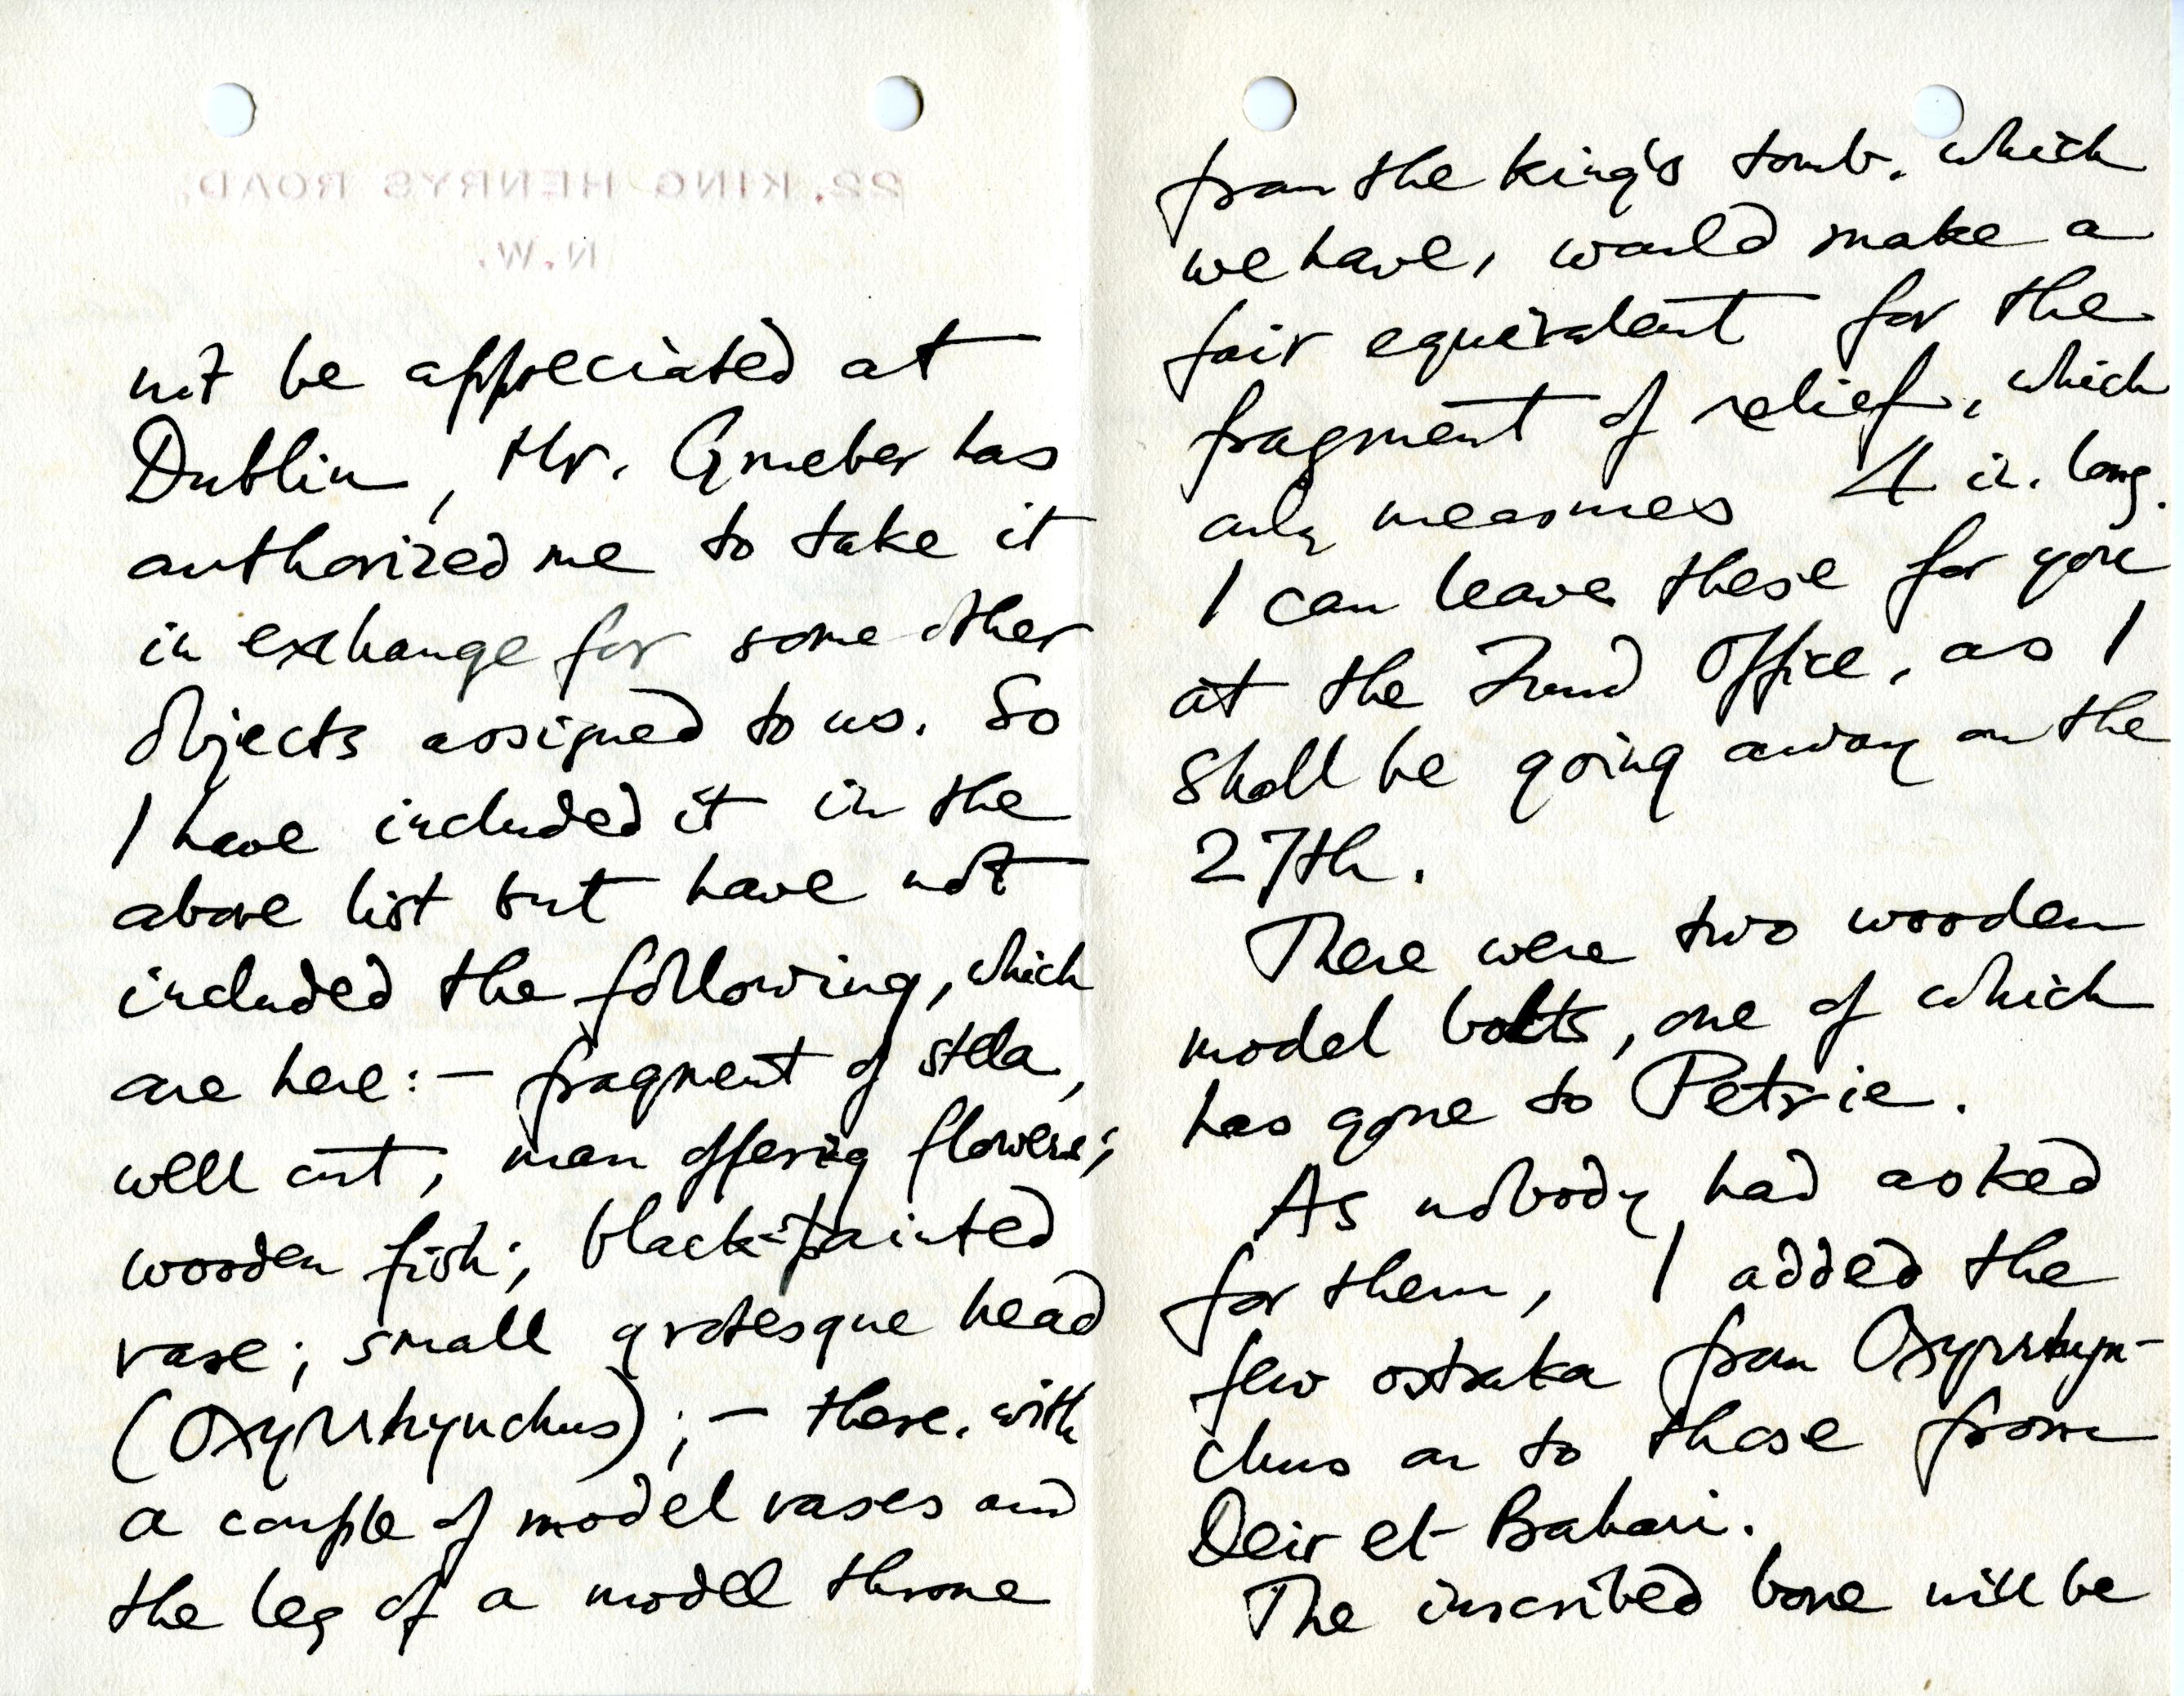 22. KING HENRYS ROAD,
N.W.
not be appreciated at
Dublin, Mr. Grueber has
authorized me to take it
in exchange for some other
objects assigned to us. So
I have included it in the
above list but have not
included the following, which
are here: — fragment of stela,
well cut, man offering flowers;
wooden fish; black-painted
vase; small grotesque head
(Oxyrrhynchus); — these, with
a couple of model vases and
the leg of a model throne
from the king's tomb, which
we have, would make a
fair equivalent for the
fragment of relief, which
only measures 4 in. long.
I can leave these for you
at the Fund Office, as I
shall be going away on the
27th.
There were two wooden
model bolts, one of which
has gone to Petrie.
As nobody had asked
for them, I added the
few ostraka from Oxyrrhyn-
chus on to those from
Deir el-Bahari.
The inscribed bone will be